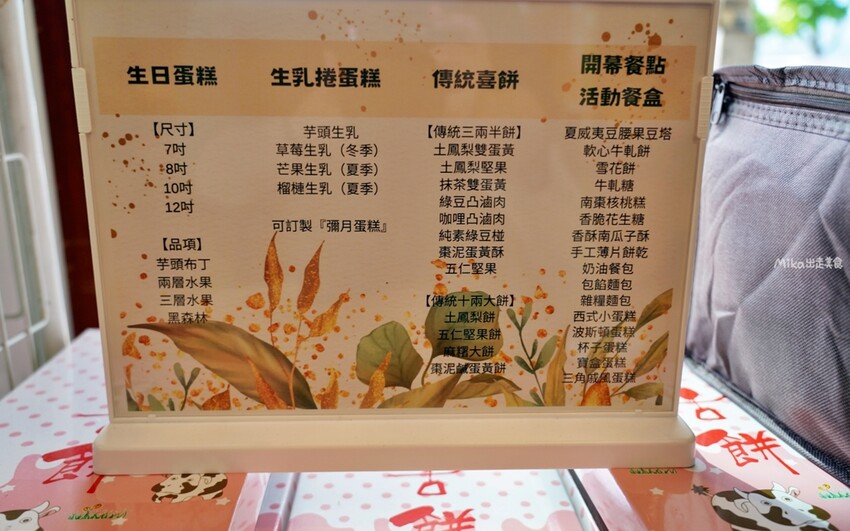 生日蛋糕
【尺寸】
7吋
8吋
10吋
12吋
【品項】
芋頭布丁
兩層水果
三層水果
黑森林
生乳捲蛋糕
芋頭生乳
草莓生乳（冬季）
芒果生乳（夏季）
榴槤生乳（夏季）
可訂製『彌月蛋糕』
傳統喜餅
【傳統三兩半餅】
土鳳梨雙蛋黃
土鳳梨堅果
抹茶雙蛋黃
綠豆凸滷肉
咖哩凸滷肉
純素綠豆椪
棗泥蛋黃酥
五仁堅果
【傳統十兩大餅】
土鳳梨餅
五仁堅果餅
麻糬大餅
棗泥鹹蛋黃餅
開幕餐點
活動餐盒
夏威夷豆腰果豆塔
軟心牛軋餅
雪花餅
牛軋糖
南棗核桃糕
香脆花生糖
香酥南瓜子酥
手工薄片餅乾
奶油餐包
包餡麵包
雜糧麵包
西式小蛋糕
波斯頓蛋糕
杯子蛋糕
寶盒蛋糕
三角戚風蛋糕
Mika出走美食